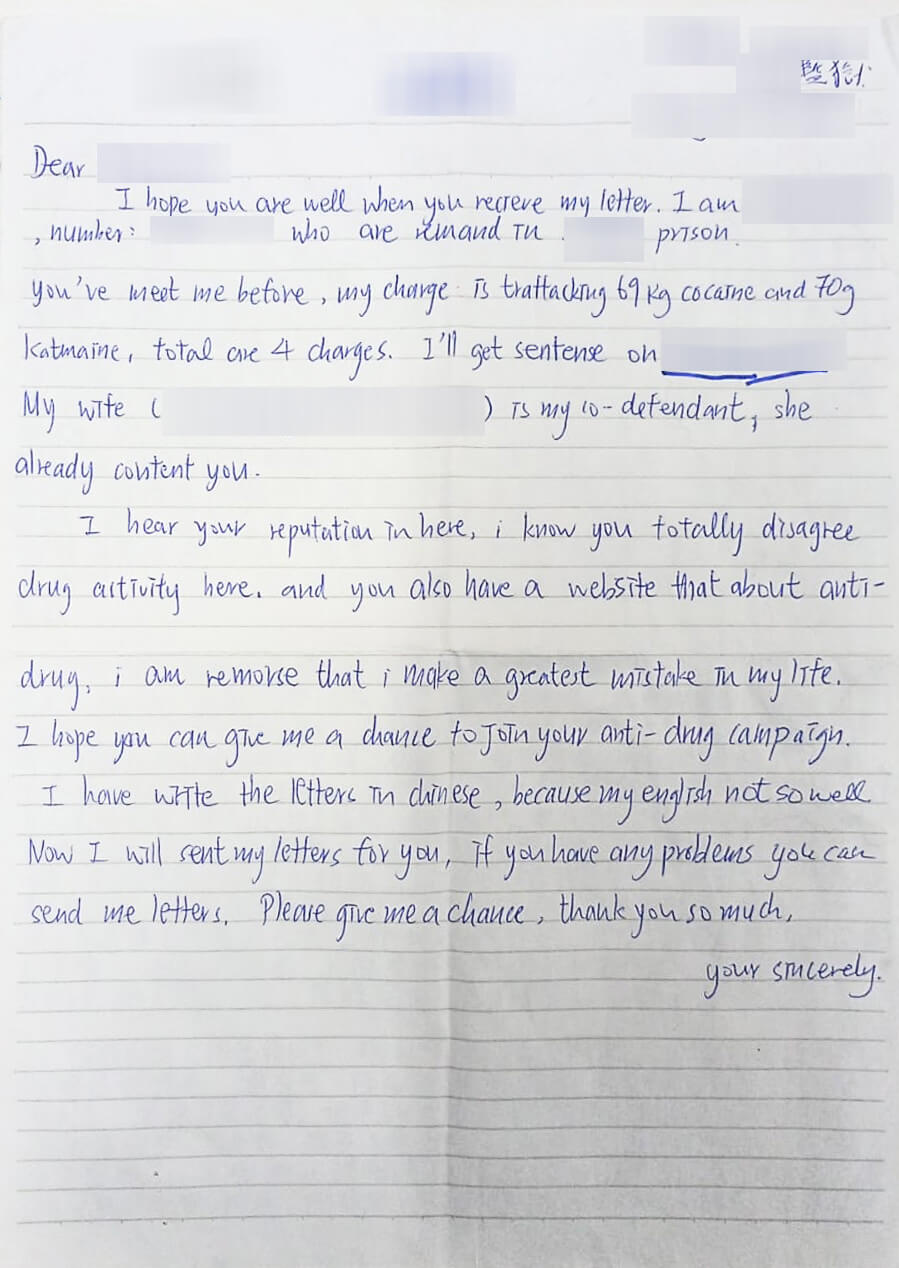 監獄
Dear
I hope you are well when you recieve my letter. I am
, number: who are remand in prison.
you've meet me before, my charge is traffacking 69 kg cocaine and 70g
katmaine, total are 4 charges. I'll get sentense on
My wife ( ) is my co-defendant, she
already content you.
I hear your reputation in here, i know you totally disagree
drug activity here. and you also have a website that about anti-
drug, i am remorse that i make a greatest mistake in my life.
I hope you can give me a chance to join your anti-drug campaign.
I have write the letters in chinese, because my english not so well
Now I will sent my letters for you, if you have any problems you can
send me letters. Please give me a chance, thank you so much,
your sincerely.